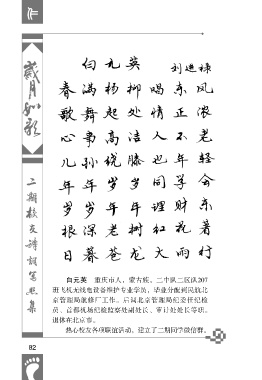 作
岁月如歌
二期校友诗词
集
白元英
刘进禄
春满杨柳唱东风
歌舞起处情正浓
心事高洁人不老
儿孙绕膝也年轻
年年岁岁同学会
岁岁年年理财东
根深老树红花著
日暮苍龙大雨村
白元英 重庆市人，蒙古族。二中队二区队207
班飞机无线电设备维护专业学员，毕业分配到民航北
京管理局航修厂工作。后调北京管理局纪委任纪检
员、首都机场纪检监察处副处长、审计处处长等职。
退休在北京市。
热心校友各项联谊活动，建立了二期同学微信群。
82